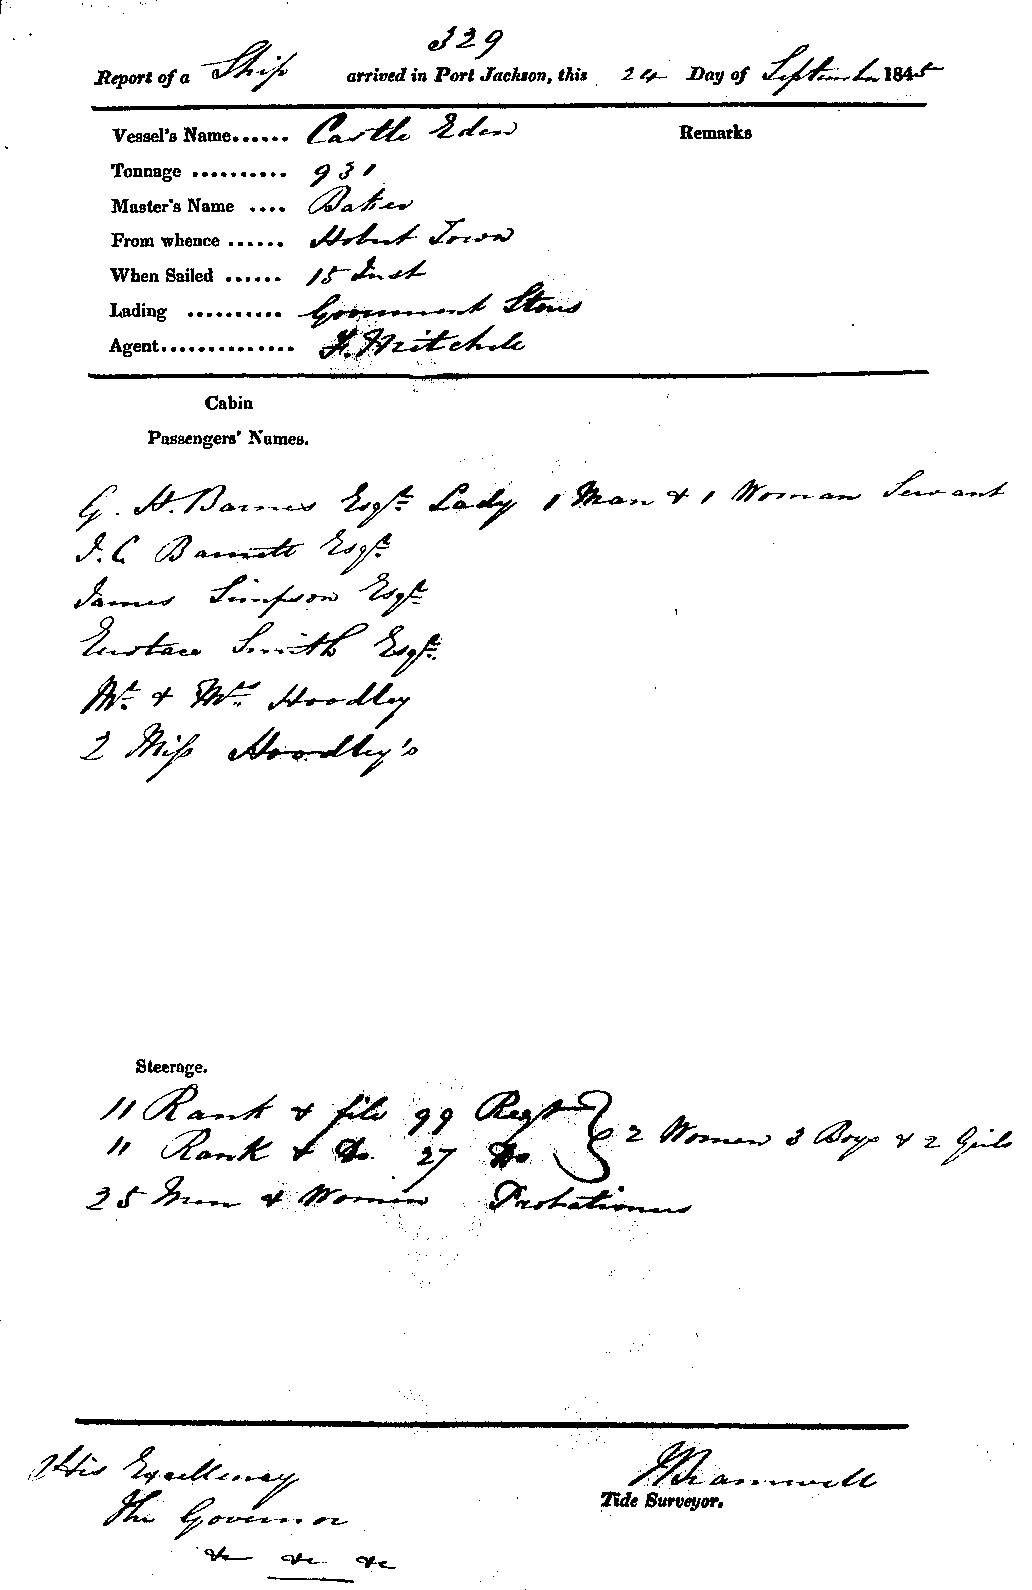 329
Report of a Ship arrived in Port Jackson, this 24 Day of September 1845
Vessel's Name...... Castle Eden
Remarks
Tonnage .......... 931
Master's Name .... Baker
From whence ...... Hobart Town
When Sailed ...... 15 Inst
Lading .......... Government Stores
Agent.............. F. Mitchele
Cabin
Passengers' Names.
G. H. Barnes Esqre Lady 1 Man & 1 Woman Servant
J. C Barnett Esqre
James Simpson Esqre
Eustace Smith Esqre
Mr. & Mrs. Hoodley
2 Miss Hoodley's
Steerage.
11 Rank & file 99 Regt
11 Rank & Do. 27 Do
2 Women 3 Boys & 2 Girls
25 Men & Women Probationers
His Excellency
The Governor
&c &c &c
Bramwell
Tide Surveyor.